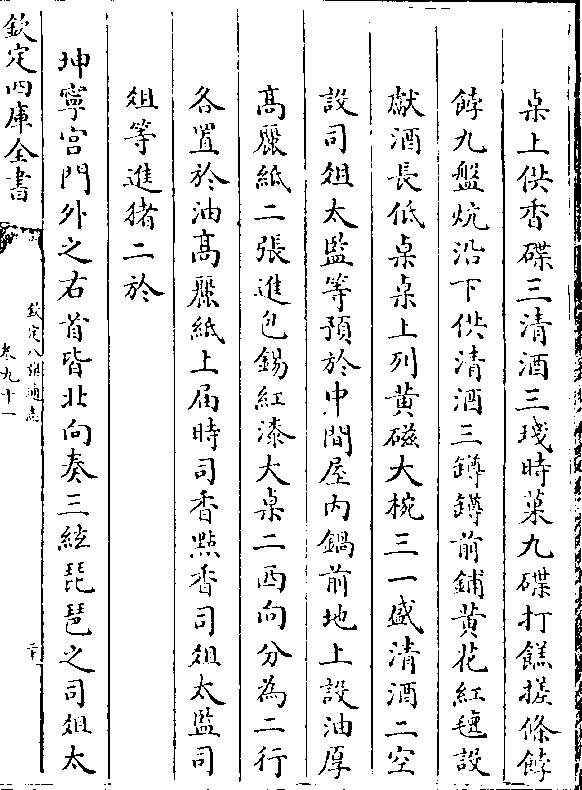 桌上供香碟三清酒三琖時菓九碟打餻搓條餑
餑九盤炕沿下供清酒三罇罇前鋪黃花紅氊設
獻酒長低桌桌上列黃磁大椀三一盛清酒二空
設司俎太監等預於中間屋内鍋前地上設油厚
高麗紙二張進包錫紅漆大桌二西向分為二行
各置於油高麗紙上届時司香㸃香司俎太監司
俎等進猪二於
坤寧宫門外之右首皆北向奏三絃琵琶之司俎太
欽定四庫全書
欽定八旗通志
卷九十一